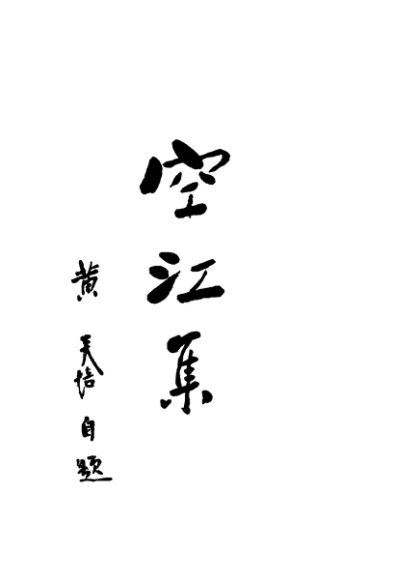 空江集
黄炎培自题